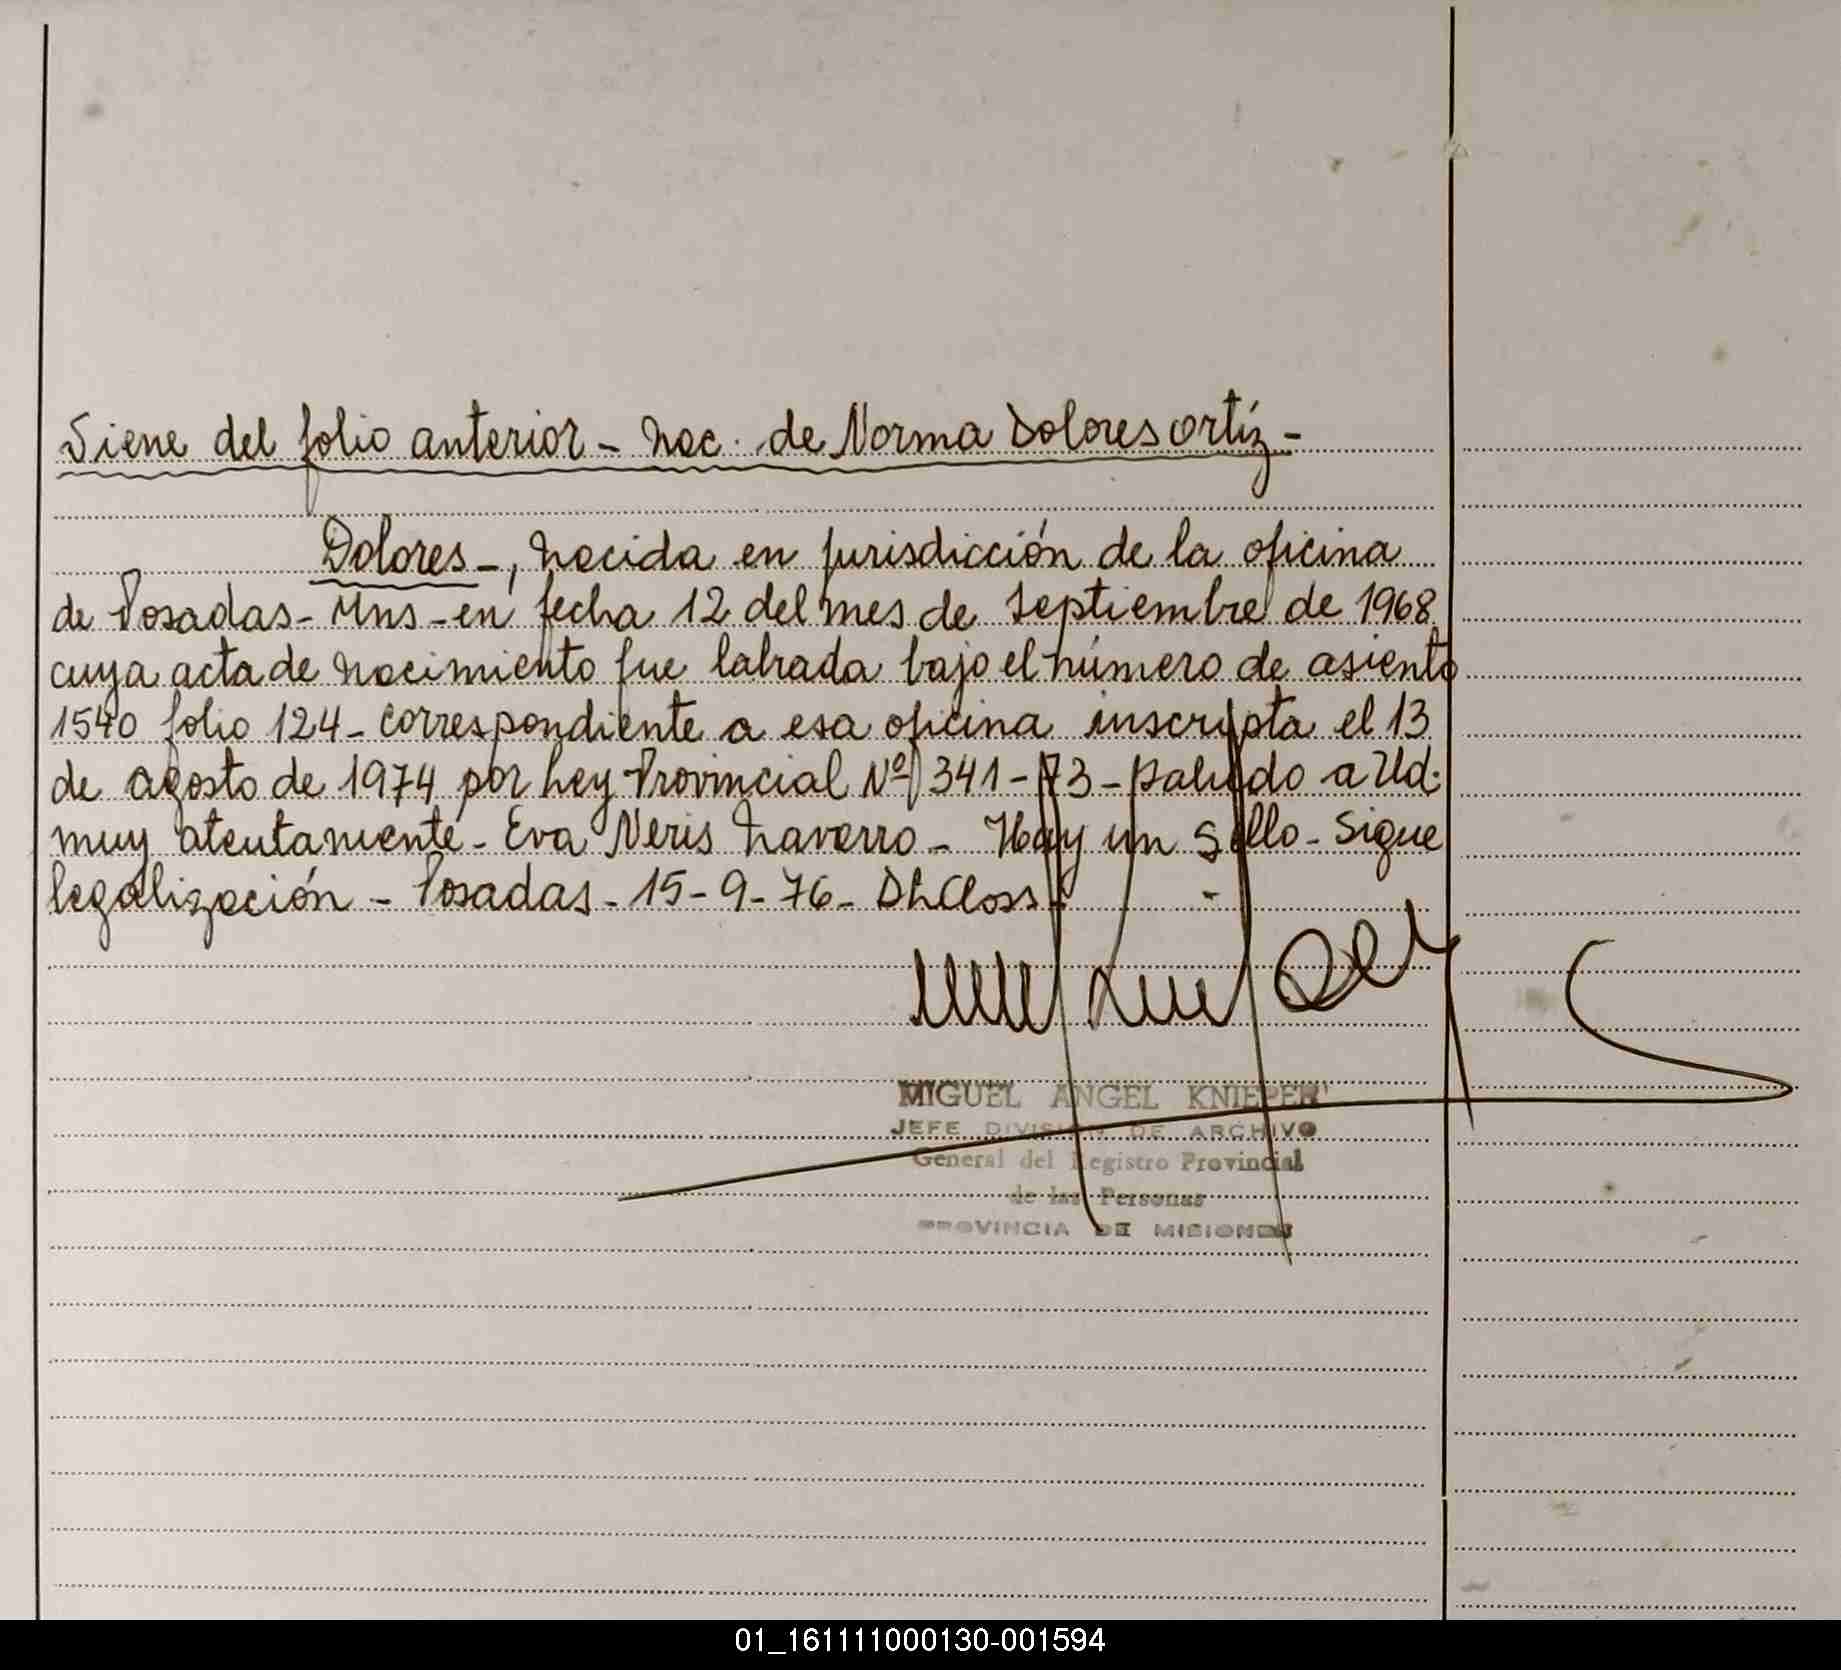 Viene del folio anterior - Nac. de Norma Dolores Ortíz -
Dolores -, Nacida en jurisdicción de la oficina
de Posadas - Mns - en fecha 12 del mes de Septiembre de 1968
cuya acta de Nacimiento fue labrada bajo el número de asiento
1540 folio 124 - correspondiente a esa oficina inscripta el 13
de agosto de 1974 por Ley Provincial Nº 341 - 73 - Saludo a Ud.
muy atentamente - Eva Neris Navarro - Hay un Sello - Sigue
legalización - Posadas - 15 - 9 - 76 -
MIGUEL ANGEL KNIEPER
JEFE DIVISION DE ARCHIVO
General del Registro Provincial
de las Personas
PROVINCIA DE MISIONES
01_161111000130-001594